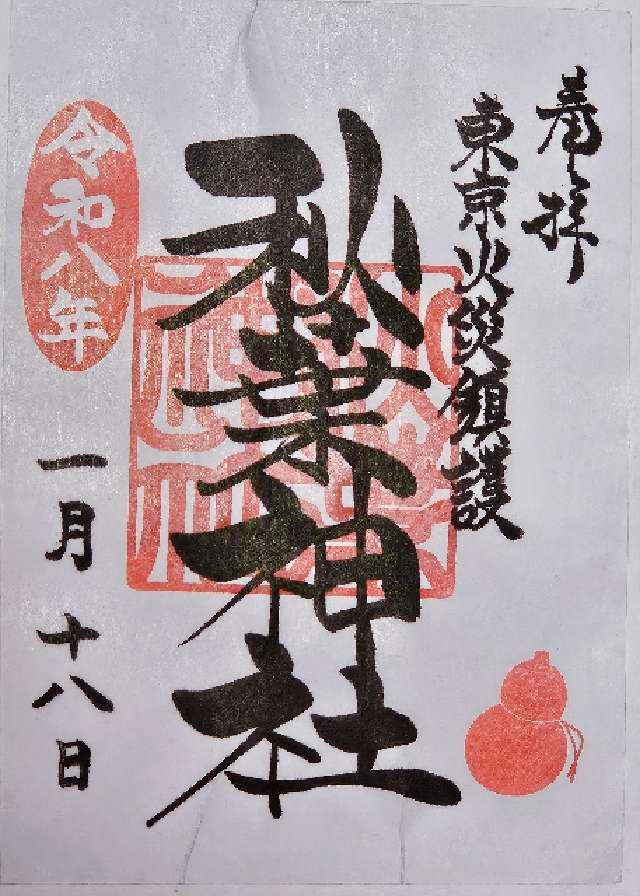 奉拝
東京火災鎮護
秋葉神社
令和八年
一月十八日